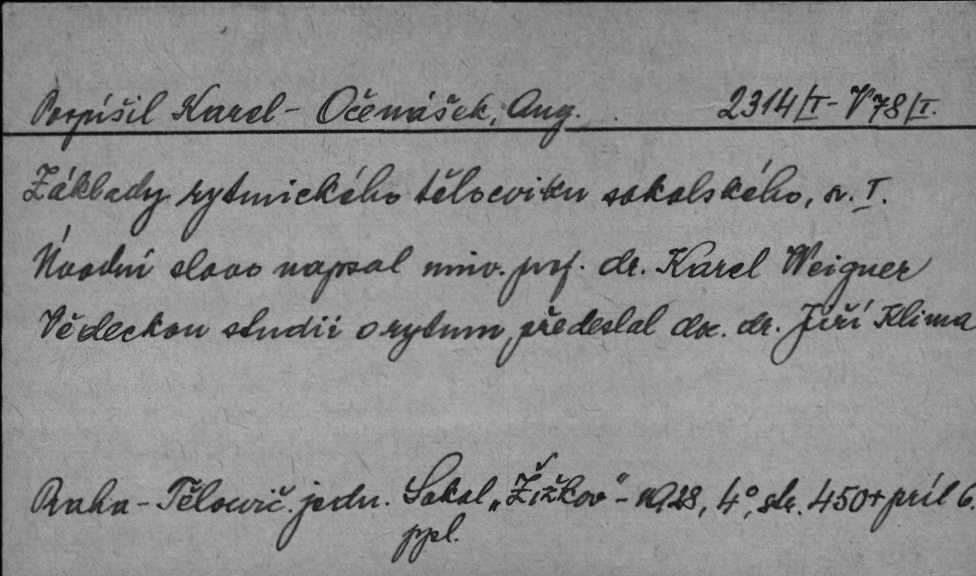 Pospíšil Karel - Očenášek, Aug. 2314/I - V78/I.
Základy rytmického tělocviku sokolského, sv. I.
Úvodní slovo napsal univ. prof. dr. Karel Weigner
Vědeckou studii o rytmu předeslal doc. dr. Jiří Klima
Praha - Tělocvič. jedn. Sokol „Žižkov" - 1928, 4°, str. 450 + príl 6.
ppl.